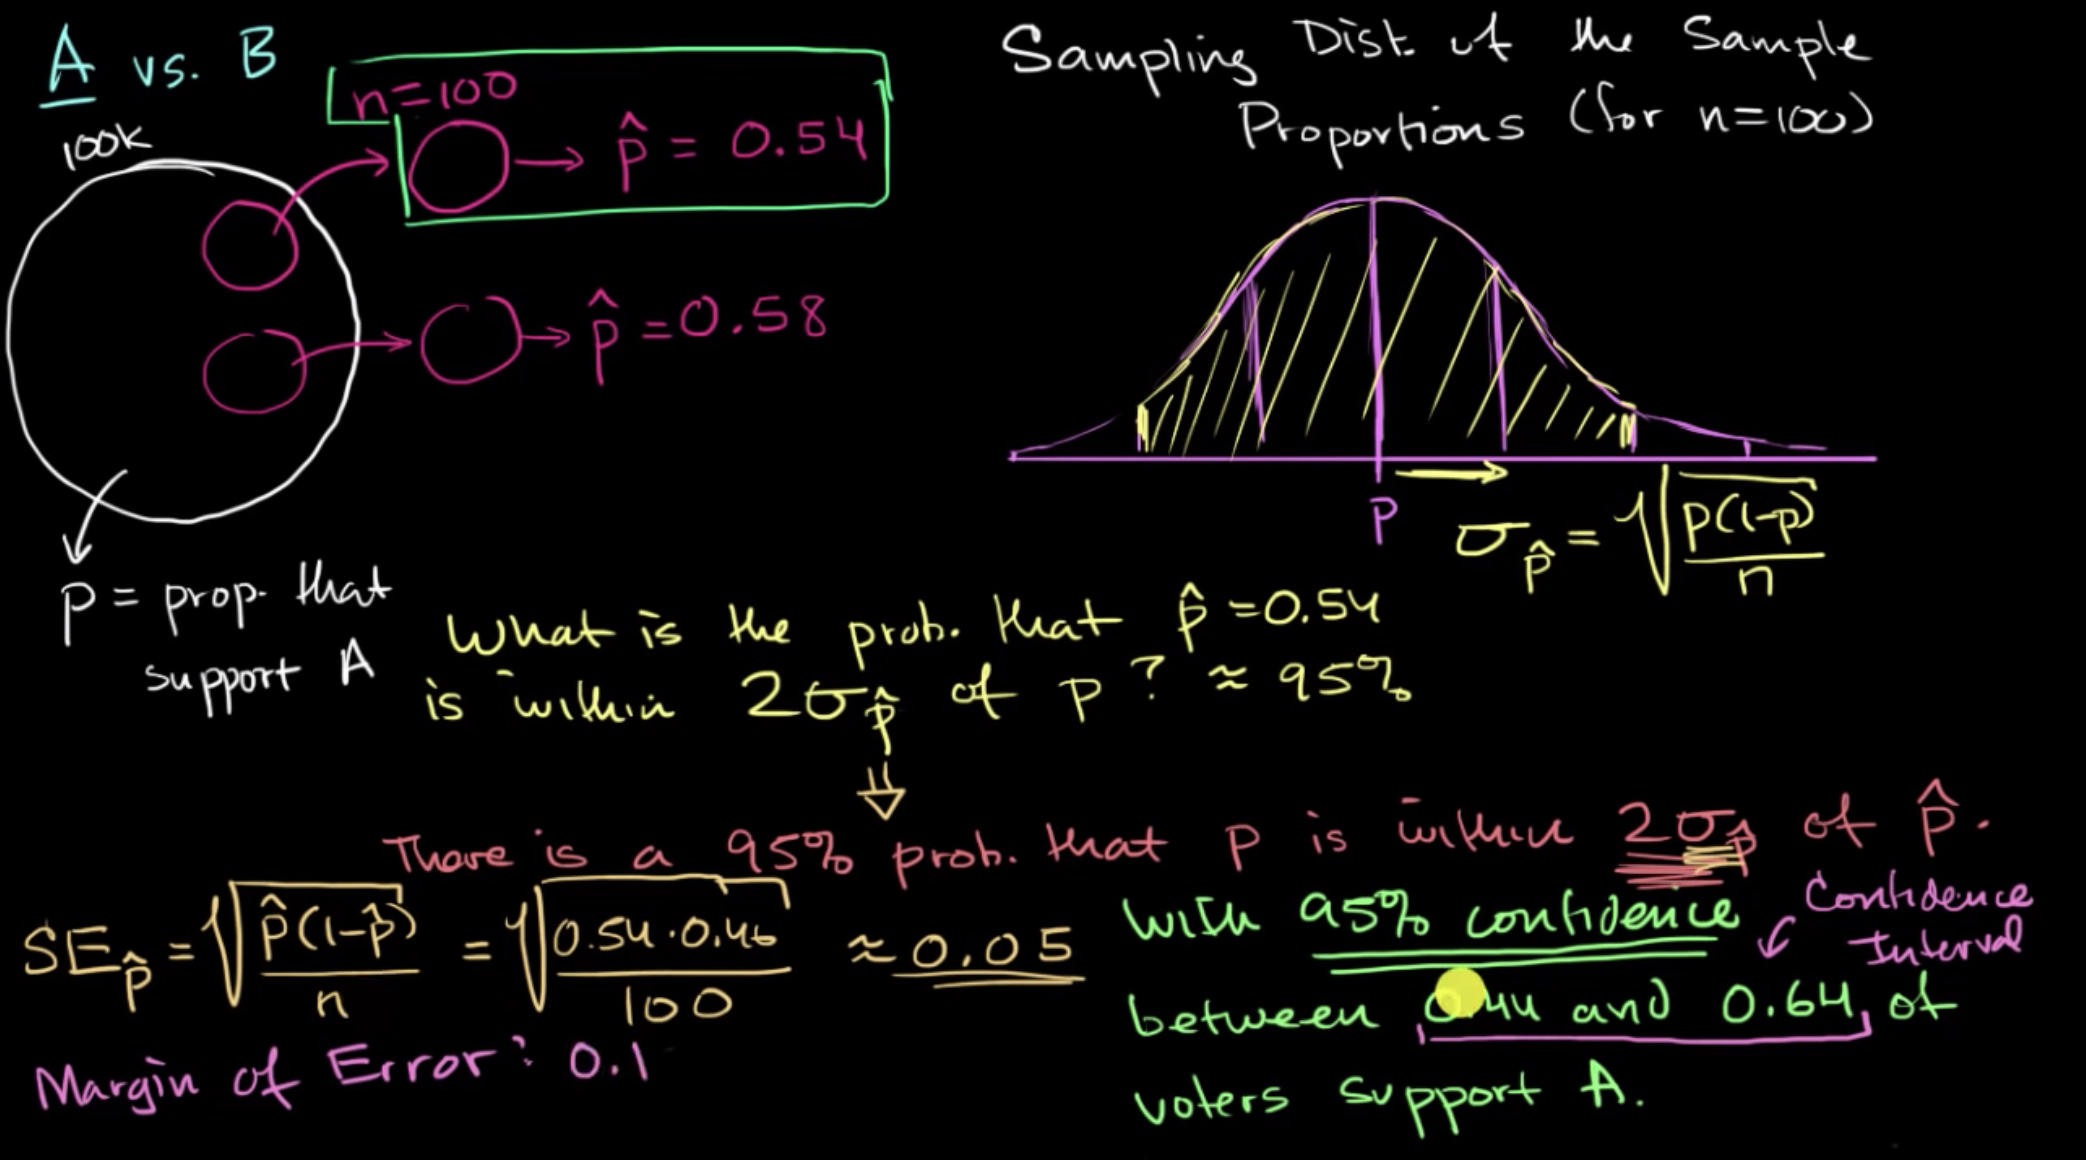 A vs. B
100k
n=100
p̂ = 0.54
p̂ = 0.58
p = prop. that
support A
Sampling Dist. of the Sample
Proportions (for n=100)
P
σp̂ = √(p(1-p)/n)
What is the prob. that p̂ = 0.54
is within 2σp̂ of p? ≈ 95%
There is a 95% prob. that p is within 2σp̂ of p̂.
SEp̂ = √(p̂(1-p̂)/n) = √(0.54·0.46/100) ≈ 0.05
Margin of Error: 0.1
With 95% confidence
between 0.44 and 0.64 of
voters support A.
Confidence
Interval